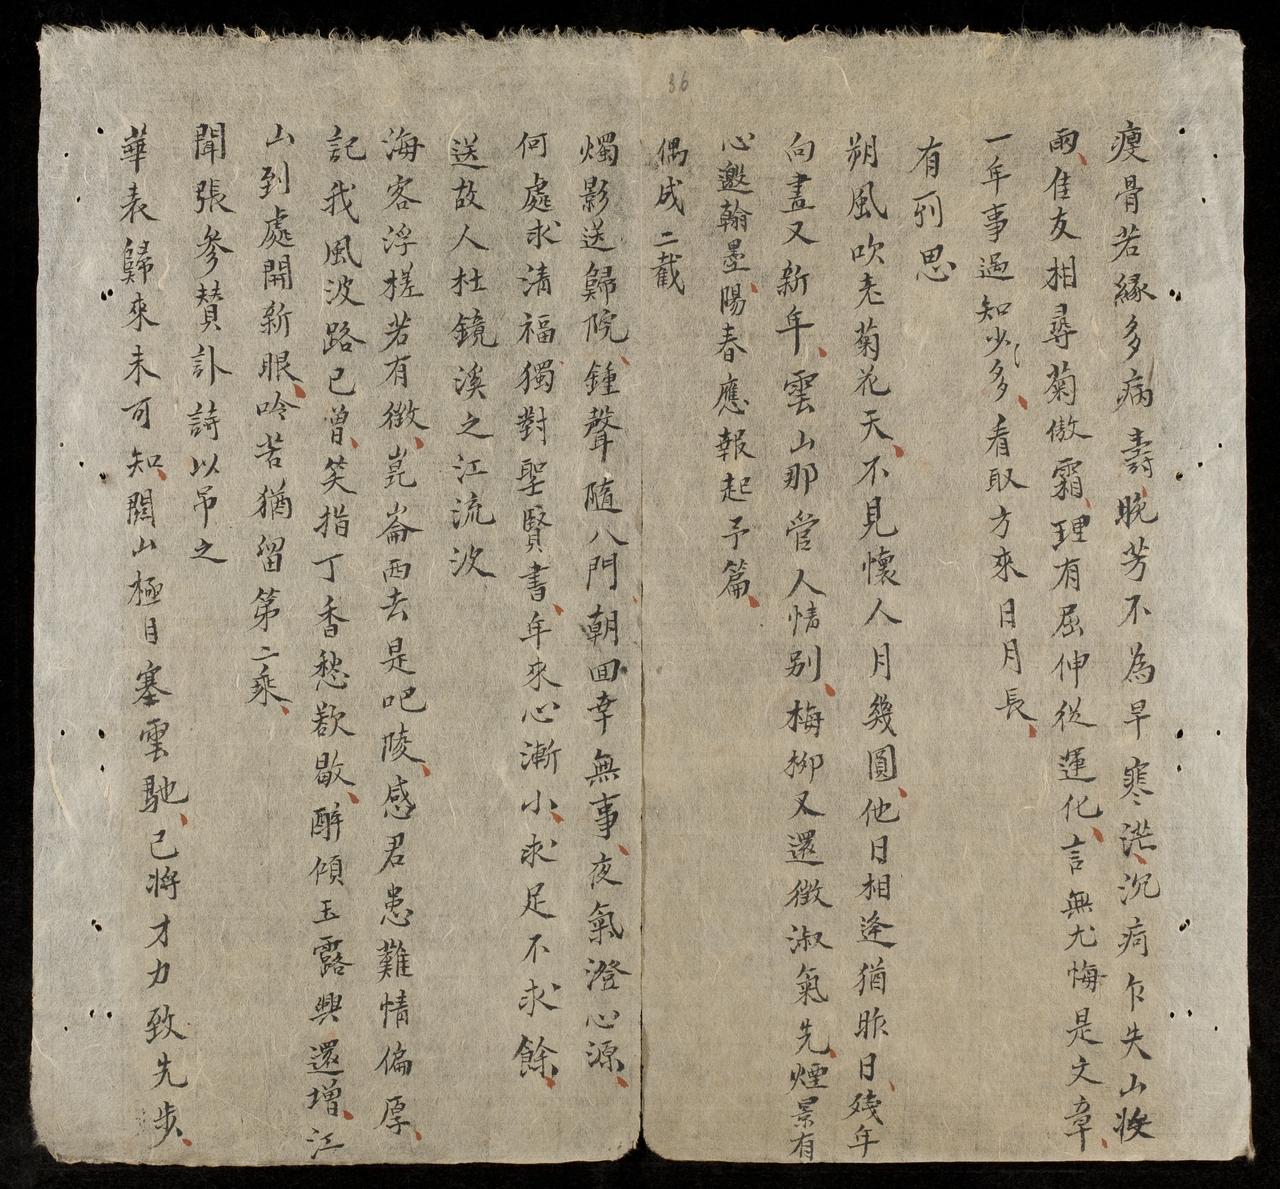 36
瘦骨若緣多病壽晚芳不為早寒茫沉疴乍失山妝
雨佳友相尋菊傲霜理有屈伸從運化言無尤悔是文章
一年事過知少多看取方來日月長
有所思
朔風吹老菊花天不見懷人月幾圓他日相逢猶昨日殘年
向盡又新年雲山那管人情別梅柳又還徵淑氣先煙景有
心邀翰墨陽春應報起予篇
偶成二截
燭影送歸院鍾聲隨八門朝回幸無事夜氣澄心源
何處求清福獨對聖賢書年來心漸小求足不求餘
送故人杜鏡溪之江流波
海客浮槎若有徵崑崙西去是吧陵感君患難情偏厚
記我風波路已曾笑指丁香愁欲歇醉傾玉露興還增江
山到處開新眼吟苦猶留第二乘
聞張參贊訃詩以吊之
華表歸來未可知關山極目塞雲馳已將才力致先步